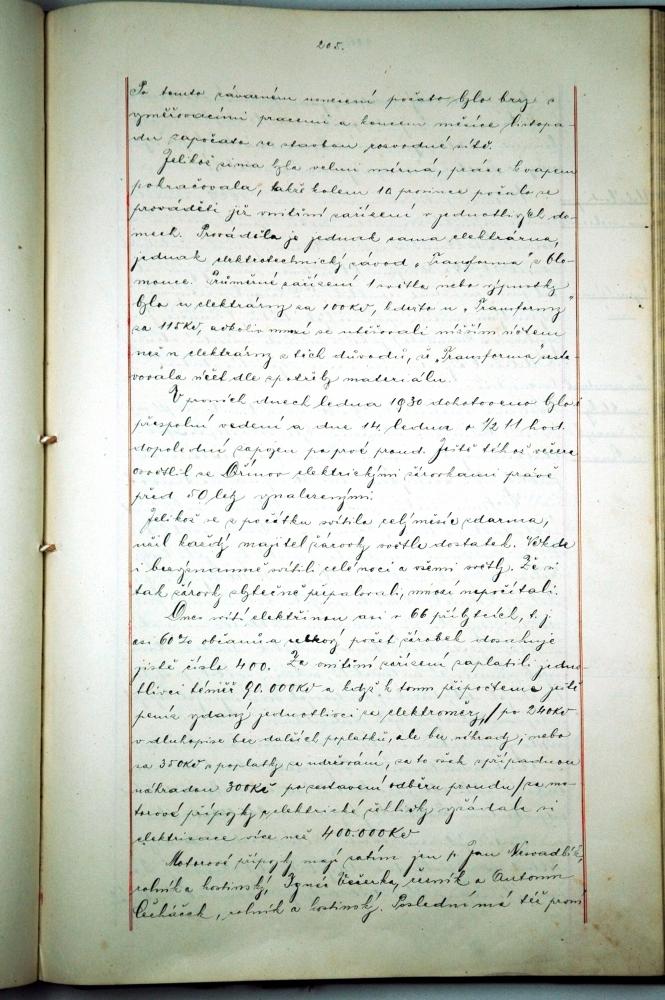 205.
Po tomto závazném usnesení počato bylo brzy s
vyměřovacími pracemi a koncem měsíce listopa-
du započato se stavbou rozvodné sítě.
Jelikož zima byla velmi mírná, práce kvapem
pokračovala, takže kolem 10 prosince počalo se
prováděti již vnitřní zařízení v jednotlivých do-
mech. Prováděla je jednak sama elektrárna,
jednak elektrotechnický závod „Transforma" z Olo-
mouce. Průměrné zařízení 1 světla nebo výpustky
bylo u elektrárny za 100Kč, kdežto u „Transformy"
za 115Kč, ačkoliv mnozí se utěšovali nižším účtem
než u elektrárny z těch důvodů, že „Transforma" sesta-
vovala účet dle spotřeby materiálu.
V prvních dnech ledna 1930 dohotoveno bylo i
přespolní vedení a dne 14. ledna o 1/2 11 hod.
dopolední zapojen po prvé proud. Ještě téhož večera
osvětlil se Dřínov elektrickými žárovkami právě
před 50 lety vynalezenými.
Jelikož se z počátku svítilo celý měsíc zdarma,
užil každý majitel žárovky světla dostatek. Někde
i bezvýznamně svítili celé noci a všemi světly. Že si
tak žárovky zbytečně přepalovali, mnozí nepočítali.
Dnes svítí elektřinou asi v 66 příbytcích, t. j.
asi 60% občanů a celkový počet žárovek dosahuje
jistě čísla 400. Za vnitřní zařízení zaplatili jedno-
tlivci téměř 90.000Kč a když k tomu připočteme ještě
peníz vydaný jednotlivci za elektroměry, /po 240Kč
v dluhopise bez dalších poplatků, ale bez náhrady, nebo
za 350Kč s poplatky za udržování, za to však s případnou
náhradou 300Kč po zastavení odběru proudu/ za mo-
torové přípojky, elektrické žehličky vyžádala si
elektrisace více než 400.000Kč
Motorové přípojky mají zatím jen p. Jan
rolník a hostinský, Ignác Večerka, řezník a Antonín
rolník a hostinský. Poslední má též první